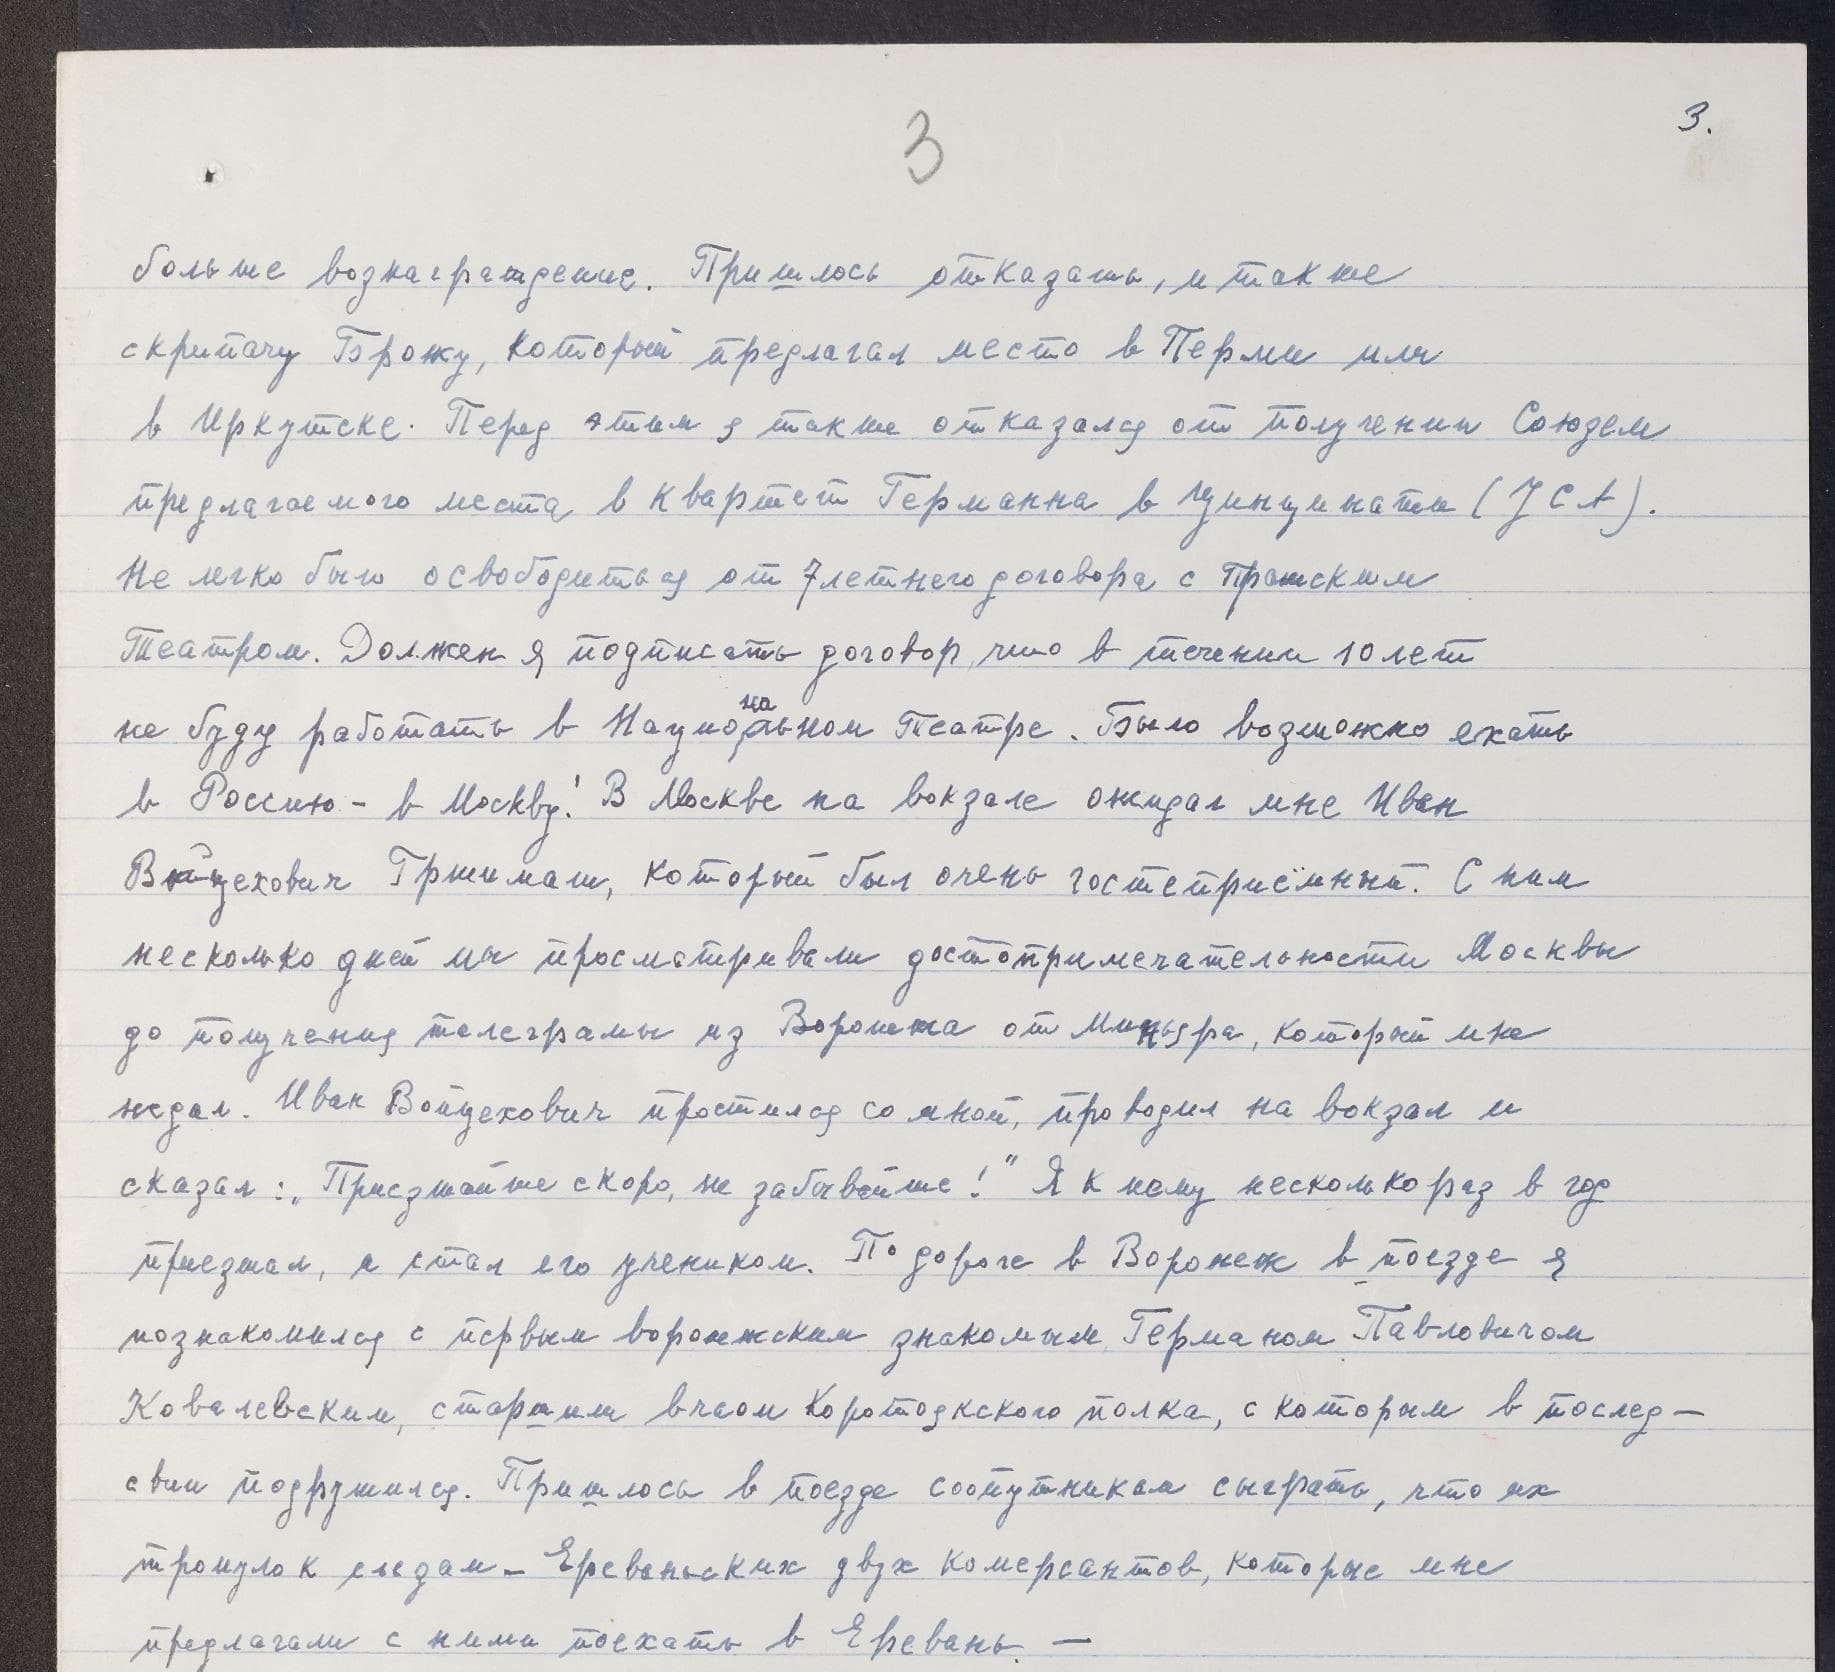 3
3.
больше вознаграждение. Пришлось отказать, и также
скрипачу Брожу, который предлагал место в Перми или
в Иркутске. Перед этим я также отказался от получении Союзем
предлагаемого места в квартет Германна в Цинцинати (УСА).
Не легко было освободиться от 7летнего договора с Пражским
Театром. Должен я подписать договор, что в течении 10 лет
не буду работать в Национальном Театре. Было возможно ехать
в Россию – в Москву! В Москве на вокзале ожидал мне Иван
Войцехович Гржимали, который был очень гостеприёмный. С ним
несколько дней мы просматривали достопримечательности Москвы
до получения телеграмы из Воронежа от Миньяра, который мне
ждал. Иван Войцехович простился со мной, проводил на вокзал и
сказал: „Приезжайте скоро, не забывайте!" Я к нему несколько раз в год
приезжал, и стал его учеником. По дороге в Воронеж в поезде я
познакомился с первым воронежским знакомым Германом Павловичом
Ковалевским, старшим врачом Коротоякского полка, с которым в послед–
свии подружился. Пришлось в поезде сопутникам сыграть, что их
тронуло к слезам – Ереваньских двух комерсантов, которые мне
предлагали с ними поехать в Еревань. —